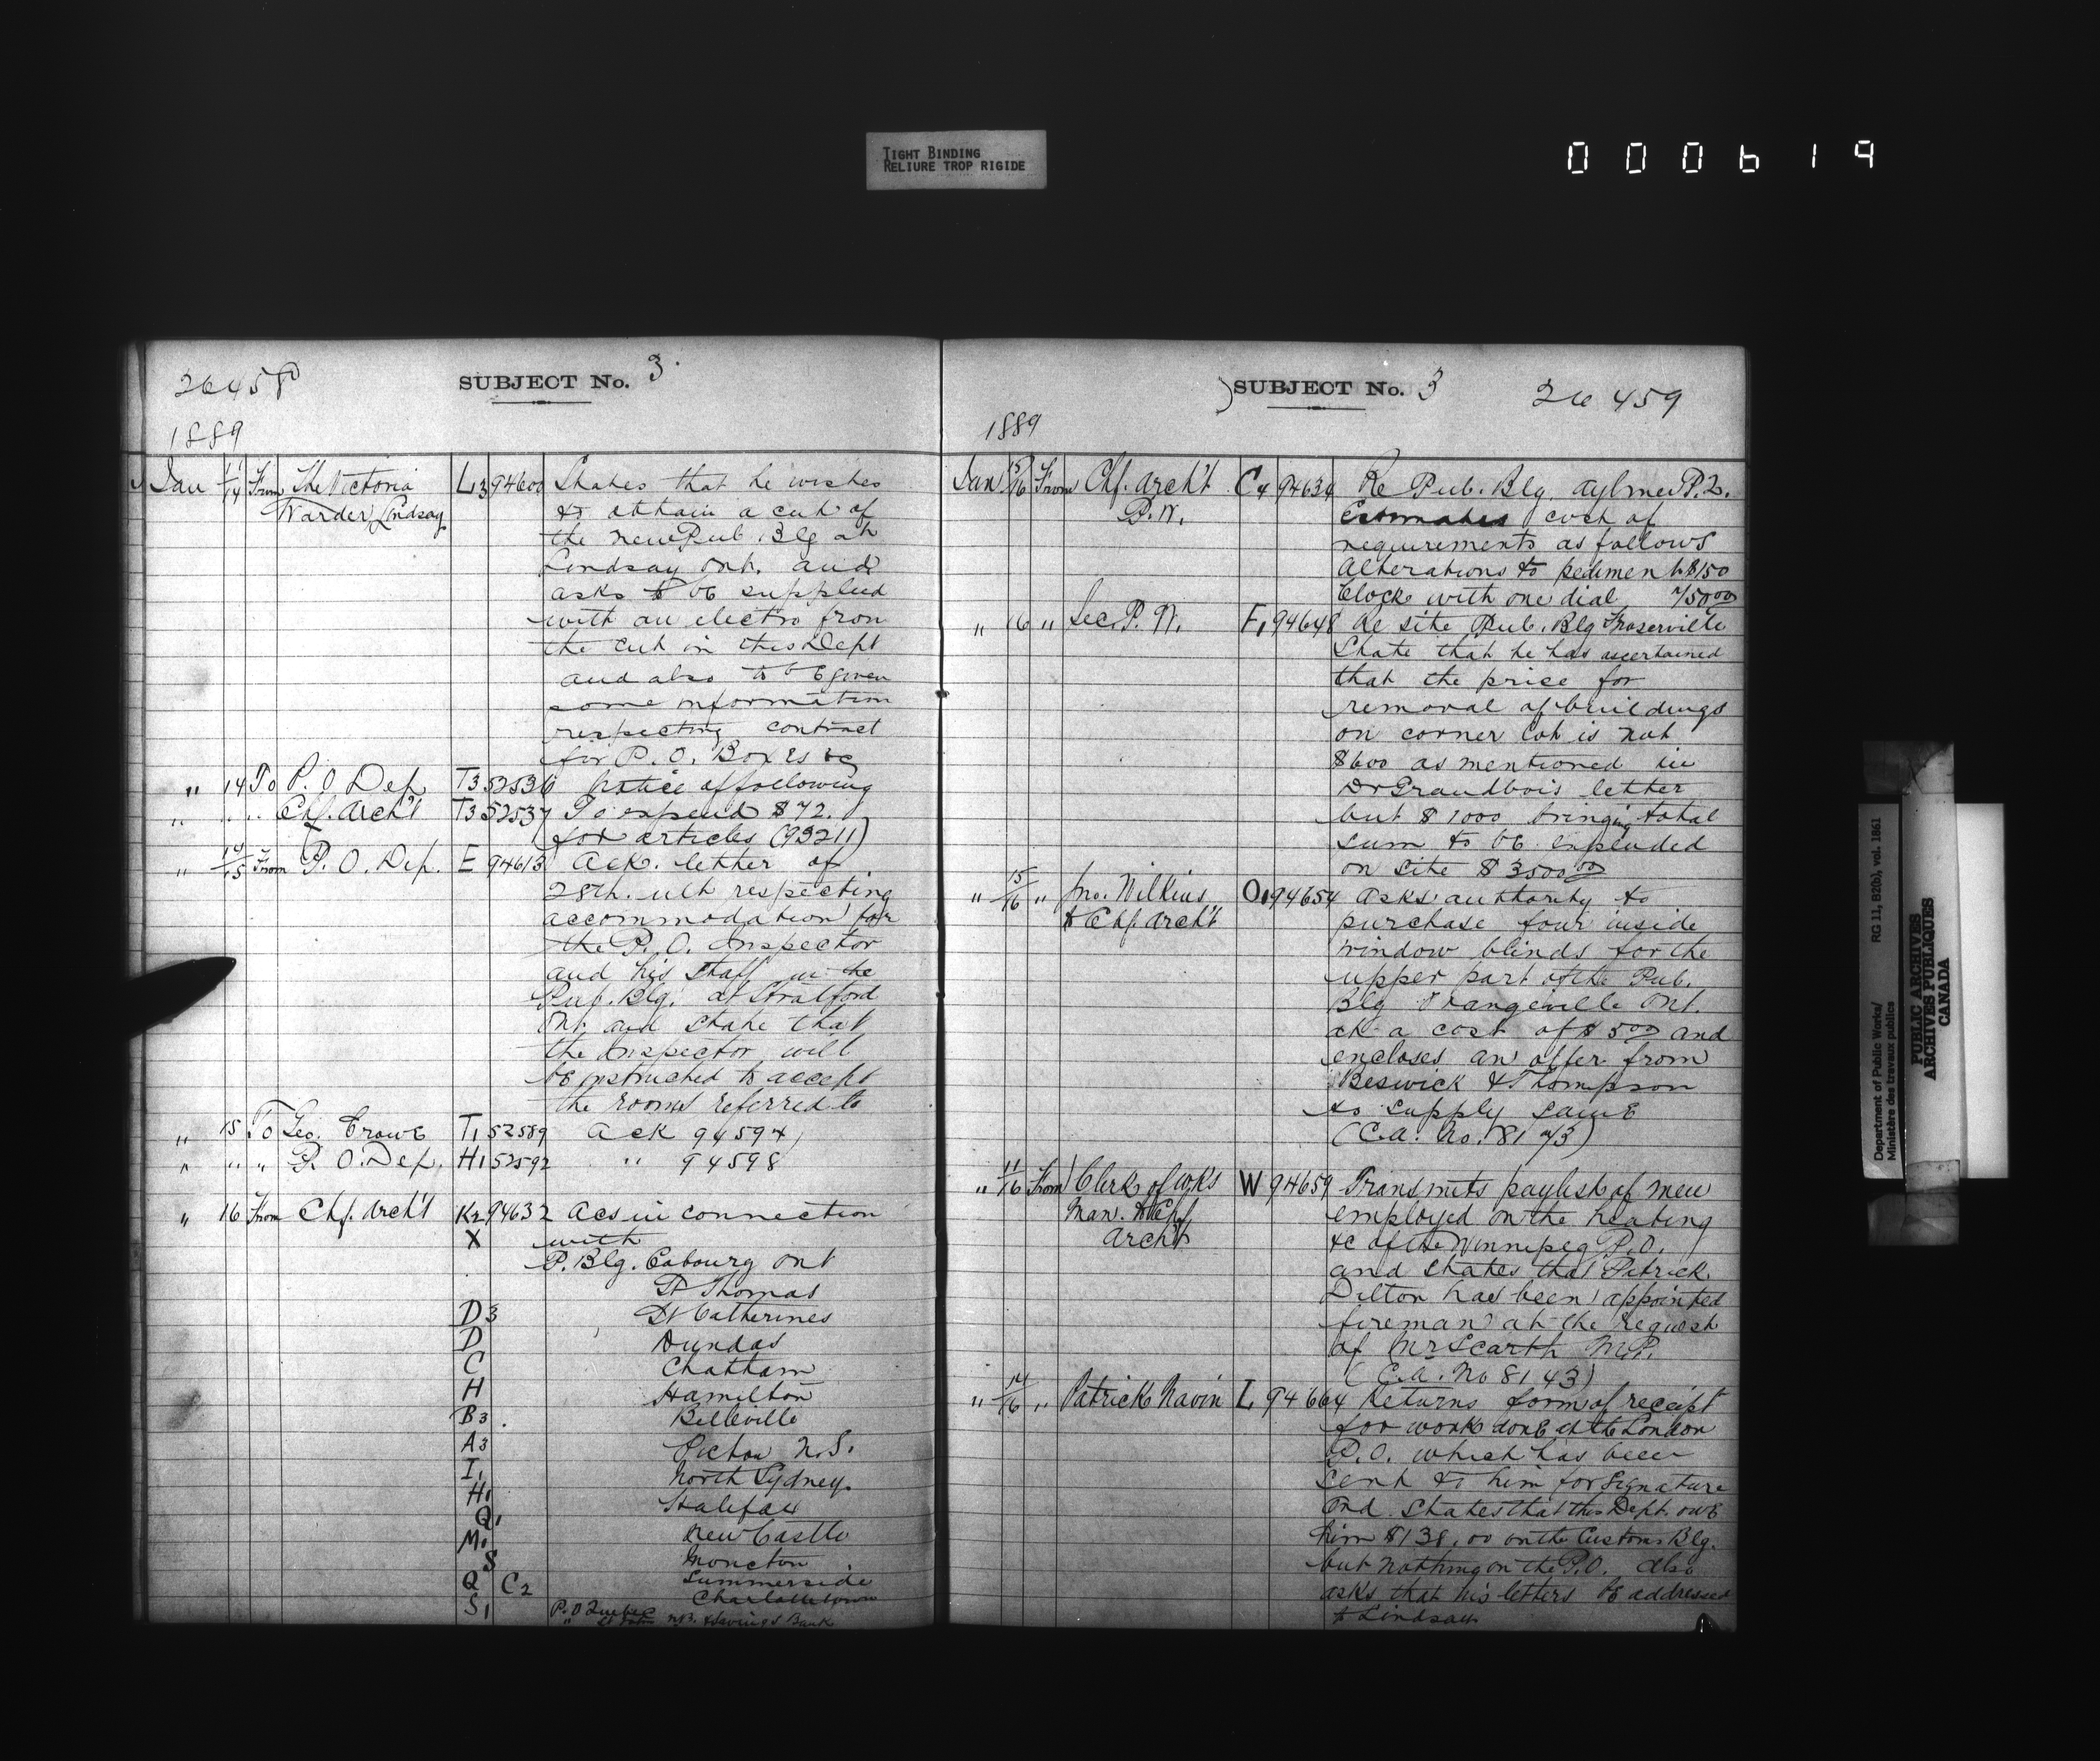 TIGHT BINDING
RELIURE TROP RIGIDE
000619
26458
SUBJECT No. 3.
1889
Jan 11/14 From The Victoria L3 94600 States that he wishes
Warder Lindsay to obtain a cut of
the new Pub. Blg at
Lindsay Ont. and
asks to be supplied
with an electro from
the cut in this Dept
and also to be given
some information
respecting contract
for P.O. Boxes &c
" 14 To P.O Dep T3 52536 Notice of following
" " " Chf. Arch't T3 52537 To expend $72.
for articles (93211)
" 14/15 From P.O. Dep. E 94613 Ack. letter of
28th. ult respecting
accommodation for
the P.O. Inspector
and his staff in the
Pub. Blg. at Stratford
Ont. and state that
the Inspector will
be instructed to accept
the rooms referred to
" 15 To Geo. Crowe T1 52589 Ack 94594
" " " P.O. Dep. H1 52592 " 94598
" 16 From Chf. Arch't K2 94632 Acs in connection
X with
P. Blg. Cobourg Ont
St Thomas
D3 St Catherines
D Dundas
C Chatham
H Hamilton
B3. Belleville
A3 Pictou N.S.
I, North Sydney.
H1 Halifax
Q1 New Castle
M1 Moncton
S Summerside
Q C2 Charlottetown
S1 P.O Quebec
" St John N.B. & Savings Bank
SUBJECT No. 3 26459
1889
Jan 15/16 From Chf. Arch't C4 94634 Re Pub. Blg. Aylmer P.Q.
P.W. Estimates cost of
requirements as follows
Alterations to pediment $150
Clock with one dial 750.00
" 16 " Sec. P. W. F1 94648 Re site Pub. Blg Fraserville
State that he has ascertained
that the price for
removal of buildings
on corner lot is not
$600 as mentioned in
Dr Grandbois letter
but $1000 bringing total
sum to be expended
on site $3500.00
" 15/16 " Jno. Wilkins O1 94654 Asks authority to
to Chf. Arch't purchase four inside
window blinds for the
upper part of the Pub.
Blg Orangeville Ont.
at a cost of $5.00 and
encloses an offer from
Beswick & Thompson
to supply same
(C.A. No. 8173)
" 11/16 From Clerk of Wks W 94659 Transmits paylist of men
Man. to Chf employed on the heating
Arch't &c of the Winnipeg P.O.
and states that Patrick
Dilton has been appointed
fireman at the request
of Mr Scarth M.P.
(C.A. No 8143)
" 14/16 " Patrick Navin L 94664 Returns form of receipt
for work done at the London
P.O. which has been
sent to him for signature
and states that this Dept. owe
him $138.00 on the Customs Blg.
but nothing on the P.O. Also
asks that his letters be addressed
to Lindsay
Department of Public Works/ RG 11, B2(b), vol. 1861
Ministère des travaux publics
PUBLIC ARCHIVES
ARCHIVES PUBLIQUES
CANADA